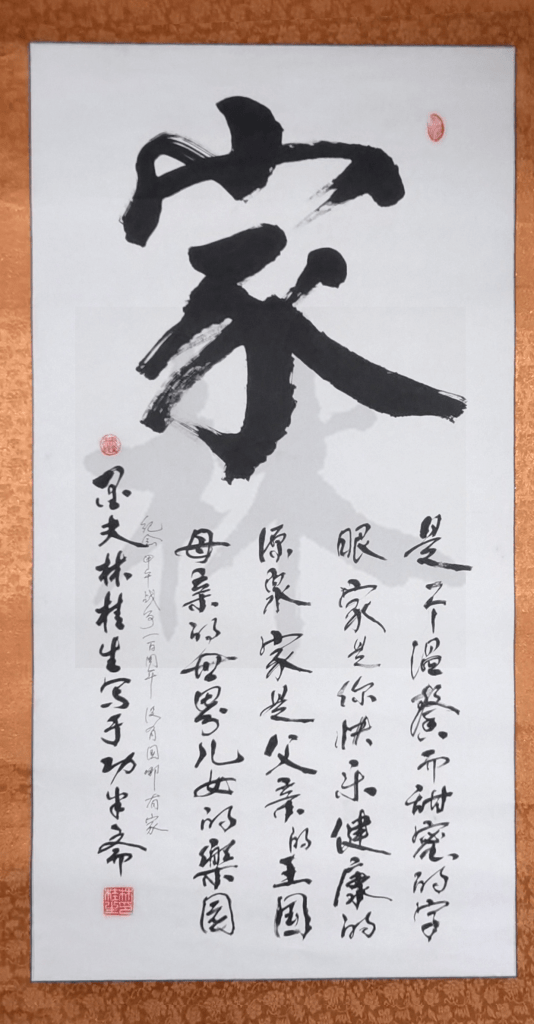 家
是一个温馨而甜蜜的字
眼家是你快乐健康的
源泉家是父亲的王国
母亲的世界儿女的樂园
纪念甲午战争一百周年 没有国哪有家
墨夫林桂生写于功半斋